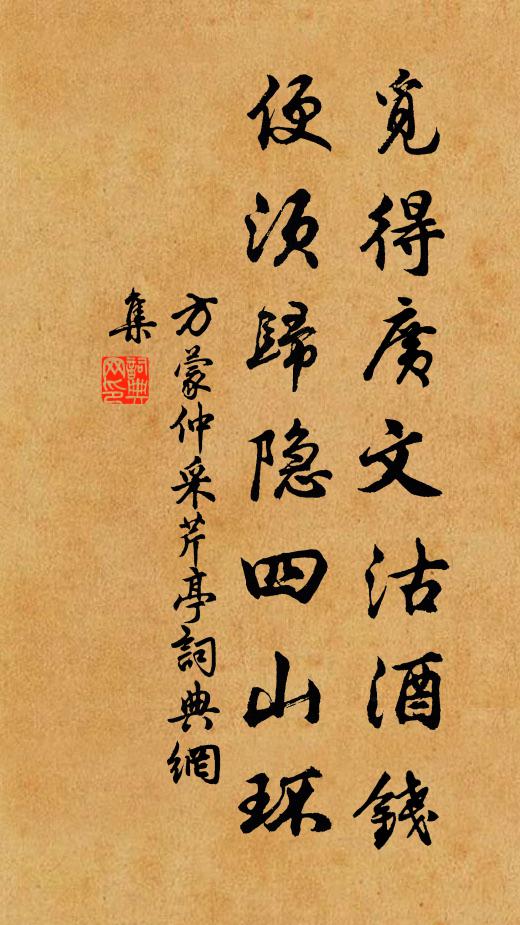 覓得廣文沽酒錢
便須歸隐四山环
方蒙仲采芹亭詞典網
集
詞典
网印